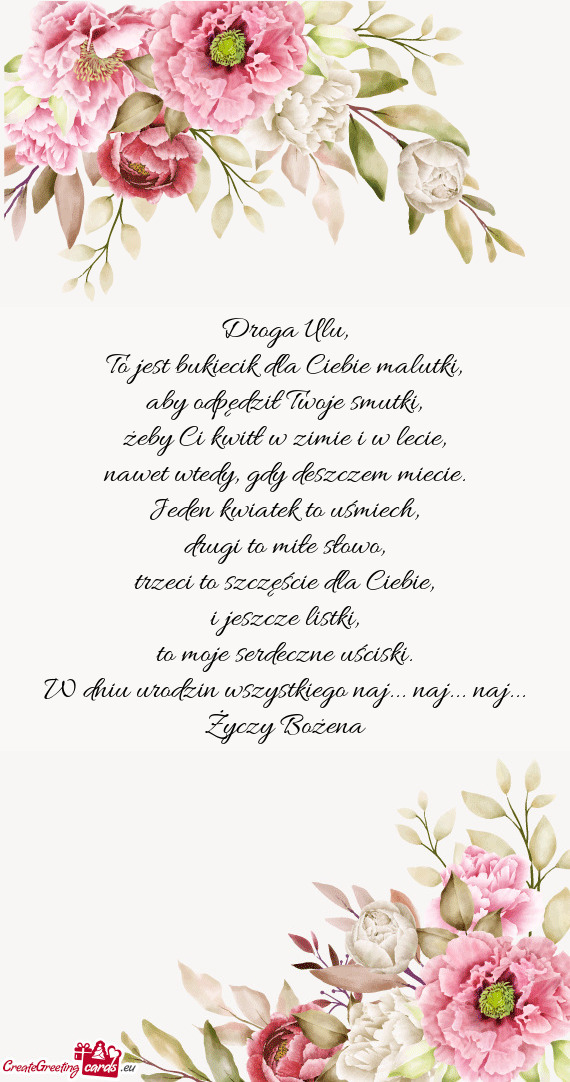 Droga Ulu,
To jest bukiecik dla Ciebie malutki,
aby odpędził Twoje smutki,
żeby Ci kwitł w zimie i w lecie,
nawet wtedy, gdy deszczem miecie.
Jeden kwiatek to uśmiech,
drugi to miłe słowo,
trzeci to szczęście dla Ciebie,
i jeszcze listki,
to moje serdeczne uściski.
W dniu urodzin wszystkiego naj... naj... naj...
Życzy Bożena
CreateGreeting cards .eu